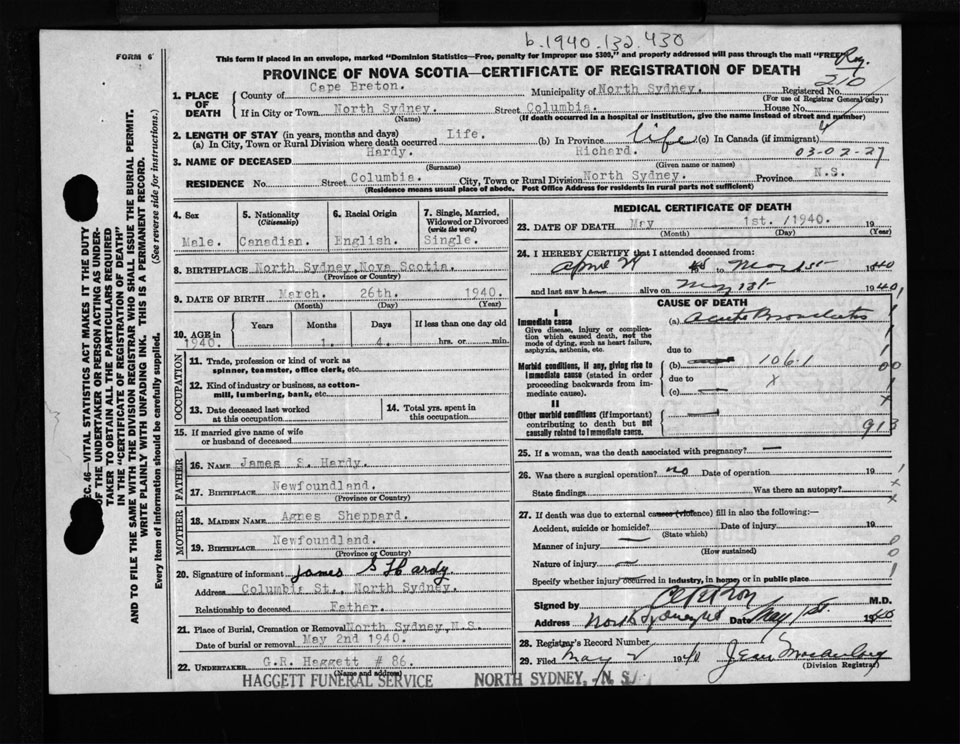 b.1940.132.430
FORM 6
This form if placed in an envelope, marked "Dominion Statistics—Free, penalty for improper use $300," and properly addressed will pass through the mail "FREE"
Reg.
PROVINCE OF NOVA SCOTIA—CERTIFICATE OF REGISTRATION OF DEATH
210
1. PLACE OF DEATH
County of Cape Breton. Municipality of North Sydney. Registered No.
(For use of Registrar General only)
If in City or Town North Sydney. Street Columbia. House No.
(Name) (If death occurred in a hospital or institution, give the name instead of street and number)
2. LENGTH OF STAY (in years, months and days)
(a) In City, Town or Rural Division where death occurred Life. (b) In Province life (c) In Canada (if immigrant)
3. NAME OF DECEASED Hardy. Richard. 03-02-27
(Surname) (Given name or names)
RESIDENCE No. Street Columbia. City, Town or Rural Division North Sydney. Province N.S.
(Residence means usual place of abode. Post Office Address for residents in rural parts not sufficient)
4. Sex
5. Nationality (Citizenship)
6. Racial Origin
7. Single, Married, Widowed or Divorced (write the word)
Male. Canadian. English. Single.
8. BIRTHPLACE North Sydney, Nova Scotia.
(Province or Country)
9. DATE OF BIRTH March. 26th. 1940.
(Month) (Day) (Year)
10. AGE in Years Months Days If less than one day old
1940. 1. 4. hrs. or min.
OCCUPATION
11. Trade, profession or kind of work as spinner, teamster, office clerk, etc.
12. Kind of industry or business, as cotton-mill, lumbering, bank, etc.
13. Date deceased last worked at this occupation
14. Total yrs. spent in this occupation
15. If married give name of wife or husband of deceased
FATHER
16. NAME James S. Hardy.
17. BIRTHPLACE Newfoundland.
(Province or Country)
MOTHER
18. MAIDEN NAME Agnes Sheppard.
19. BIRTHPLACE Newfoundland.
(Province or Country)
20. Signature of informant James S Hardy.
Address Columbia St., North Sydney.
Relationship to deceased Father.
21. Place of Burial, Cremation or Removal North Sydney, N.S.
Date of burial or removal May 2nd 1940.
22. UNDERTAKER G.R. Haggett # 86.
(Name and address)
HAGGETT FUNERAL SERVICE NORTH SYDNEY, N. S.
MEDICAL CERTIFICATE OF DEATH
23. DATE OF DEATH May 1st. 1940. 19
(Month) (Day) (Year)
24. I HEREBY CERTIFY that I attended deceased from:
April to May 1st 1940
and last saw h alive on May 1st 1940
CAUSE OF DEATH
I
Immediate cause
Give disease, injury or complication which caused death, not the mode of dying, such as heart failure, asphyxia, asthenia, etc.
(a) Acute Bronchitis
due to
Morbid conditions, if any, giving rise to immediate cause (stated in order proceeding backwards from immediate cause).
(b) 106.1
due to x
(c)
II
Other morbid conditions (if important) contributing to death but not causally related to immediate cause.
913
25. If a woman, was the death associated with pregnancy? —
26. Was there a surgical operation? no Date of operation 19
State findings Was there an autopsy?
27. If death was due to external causes (violence) fill in also the following:—
Accident, suicide or homicide? Date of injury 19
(State which)
Manner of injury
(How sustained)
Nature of injury
Specify whether injury occurred in industry, in home, or in public place
Signed by M.D.
Address North Sydney NS Date May 1st. 1940
28. Registrar's Record Number
29. Filed May 2 1940 Jean
(Division Registrar)
SEC. 46—VITAL STATISTICS ACT MAKES IT THE DUTY
OF THE UNDERTAKER OR PERSON ACTING AS UNDER-
TAKER TO OBTAIN ALL THE PARTICULARS REQUIRED
IN THE "CERTIFICATE OF REGISTRATION OF DEATH"
AND TO FILE THE SAME WITH THE DIVISION REGISTRAR WHO SHALL ISSUE THE BURIAL PERMIT.
WRITE PLAINLY WITH UNFADING INK. THIS IS A PERMANENT RECORD.
Every item of information should be carefully supplied. (See reverse side for instructions.)